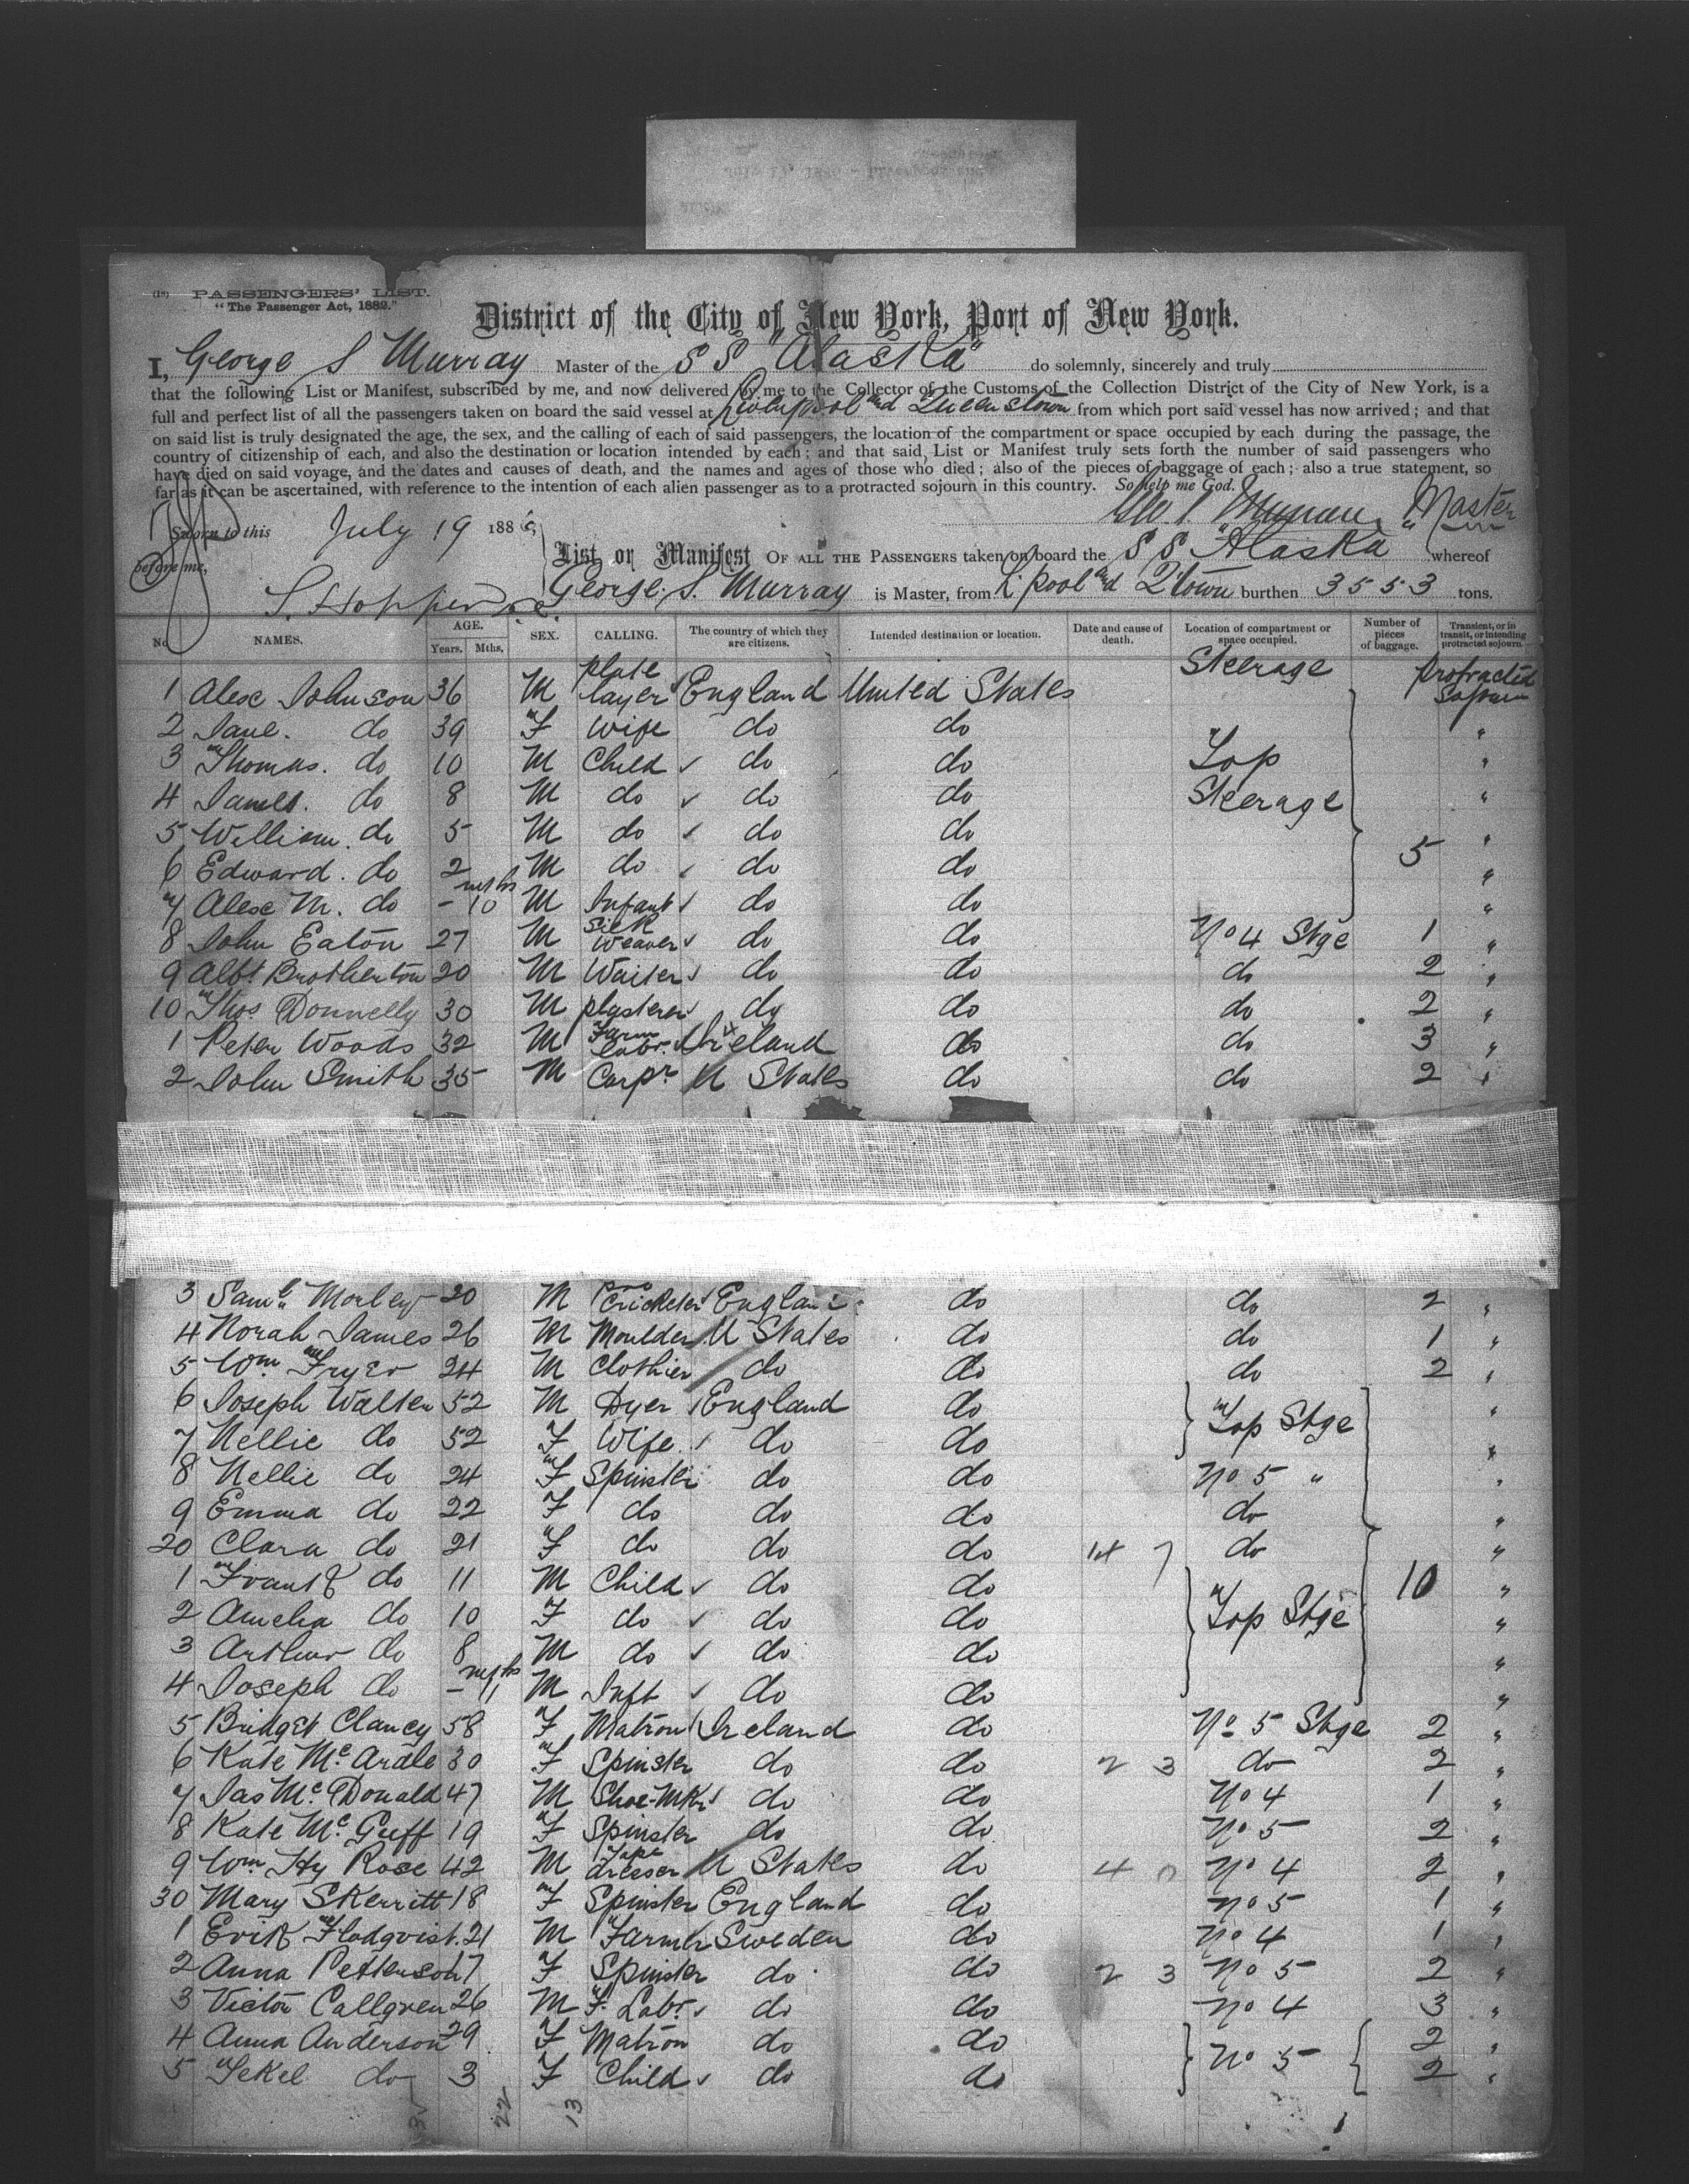 (18) PASSENGERS' LIST.
"The Passenger Act, 1882."
District of the City of New York, Port of New York.
I, George S Murray Master of the S S "Alaska" do solemnly, sincerely and truly
that the following List or Manifest, subscribed by me, and now delivered by me to the Collector of the Customs of the Collection District of the City of New York, is a
full and perfect list of all the passengers taken on board the said vessel at Liverpool and Queenstown from which port said vessel has now arrived; and that
on said list is truly designated the age, the sex, and the calling of each of said passengers, the location of the compartment or space occupied by each during the passage, the
country of citizenship of each, and also the destination or location intended by each; and that said List or Manifest truly sets forth the number of said passengers who
have died on said voyage, and the dates and causes of death, and the names and ages of those who died; also of the pieces of baggage of each; also a true statement, so
far as it can be ascertained, with reference to the intention of each alien passenger as to a protracted sojourn in this country. So help me God.
Geo S Murray Master
Sworn to this July 19 188
before me,
List or Manifest OF ALL THE PASSENGERS taken on board the S S "Alaska" whereof
S. Hopper George. S. Murray is Master, from L'pool and Q'town burthen 3553 tons.
No. NAMES. AGE. Years. Mths. SEX. CALLING. The country of which they are citizens. Intended destination or location. Date and cause of death. Location of compartment or space occupied. Number of pieces of baggage. Transient, or in transit, or intending protracted sojourn.
1 Alex Johnson 36 M plate layer England United States Steerage protracted Sojourn
2 Jane. do 39 F Wife do do "
3 Thomas. do 10 M Child do do Top "
4 James. do 8 M do do do Steerage "
5 William. do 5 M do do do 5 "
6 Edward. do 2 M do do do "
7 Alex M. do - 10 mths M Infant do do "
8 John Eaton 27 M Silk Weaver do do No 4 Stge 1 "
9 Albt Brotherton 20 M Waiter do do do 2 "
10 Thos Donnelly 30 M plasterer do do do 2 "
1 Peter Woods 32 M Farm Labr. Ireland do do 3 "
2 John Smith 35 M Carpr U States do do 2 "
3 Saml. Morley 20 M Cricketer England do do 2 "
4 Norah James 26 M Moulder U States do do 1 "
5 Wm Fryer 24 M Clothier do do do 2 "
6 Joseph Walter 52 M Dyer England do Top Stge "
7 Nellie do 52 F Wife do do "
8 Nellie do 24 F Spinster do do No 5 " "
9 Emma do 22 F do do do do "
20 Clara do 21 F do do do do "
1 Frank do 11 M Child do do 10 "
2 Amelia do 10 F do do do Top Stge "
3 Arthur do 8 M do do do "
4 Joseph do - 11 mths M Inft do do "
5 Bridget Clancy 58 F Matron Ireland do No 5 Stge 2 "
6 Kate Mc Ardle 30 F Spinster do do 2 3 do 2 "
7 Jas Mc Donald 47 M Shoe-Mkr do do No 4 1 "
8 Kate Mc Guff 19 F Spinster do do No 5 2 "
9 Wm Hy Rose 42 M Tape dresser U States do No 4 2 "
30 Mary Skerritt 18 F Spinster England do No 5 1 "
1 Erik Flodqvist. 21 M Farmer Sweden do No 4 1 "
2 Anna Petterson 17 F Spinster do do 2 3 No 5 2 "
3 Victor Callgren 26 M F. Labr. do do No 4 3 "
4 Anna Anderson 29 F Matron do do No 5 2 "
5 Tekel do 3 F Child do do 2 "
22 13